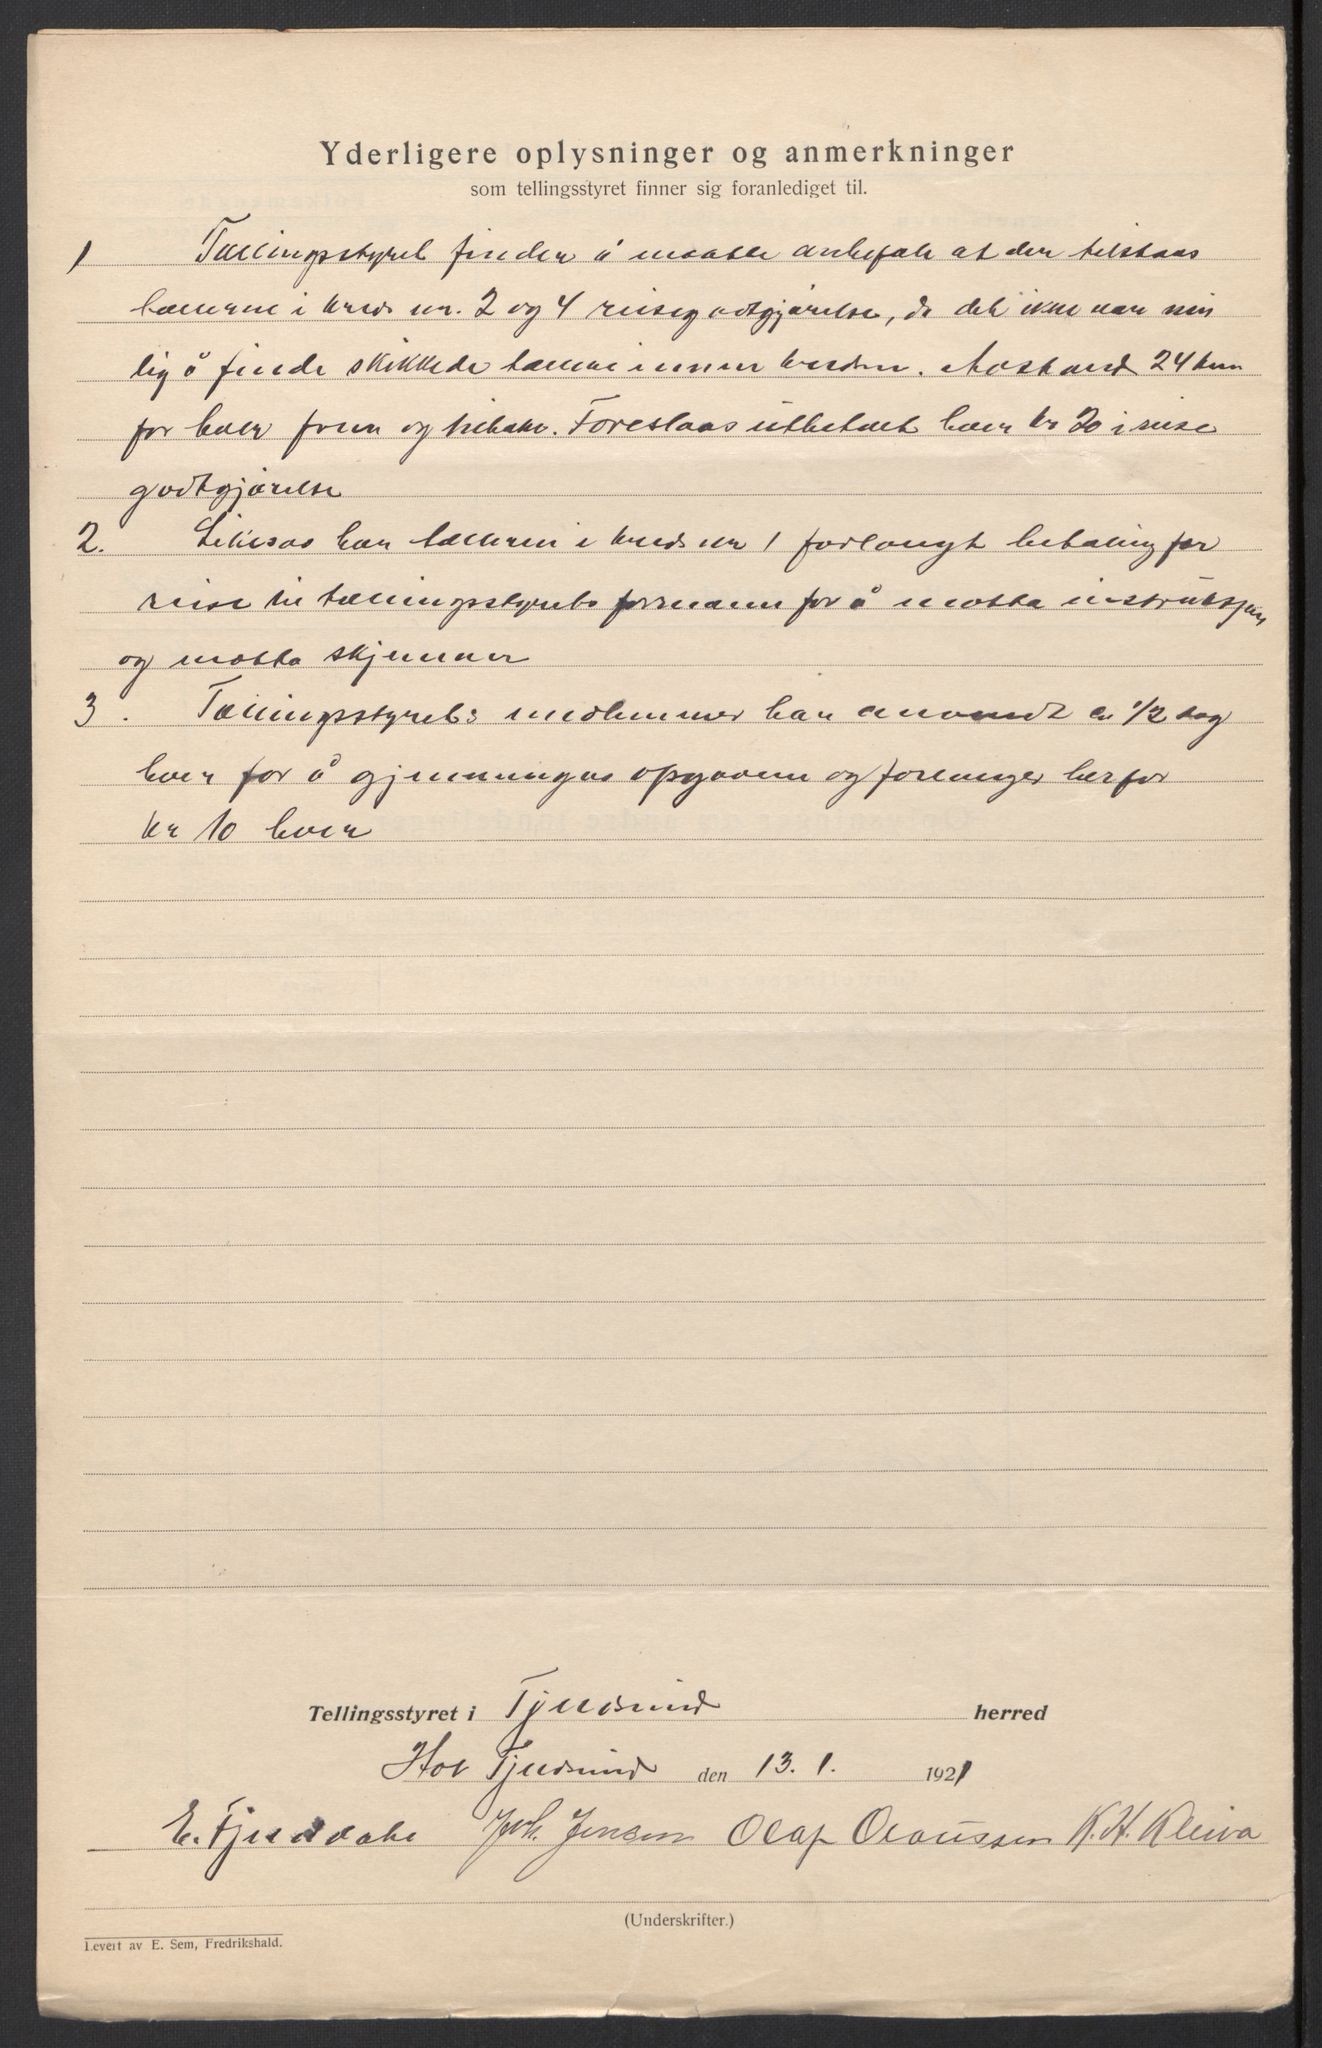 Yderligere oplysninger og anmerkninger
som tellingsstyret finner sig foranlediget til.
1 Tællingsstyret finder å maatte anbefale at der tilstaas
tællerne i kreds nr. 2 og 4 reisegodtgjørelse, da det ikke var mu
lig å finde skikkede tællere innen kredsen. Avstand 24 km
for hver frem og tilbake. Foreslaas utbetalt hver kr 20 i reise
godtgjørelse
2. Likesaa har tælleren i kreds nr 1 forlangt betaling for
reise til tællingsstyrets formann for å motta instruksjon
og motta skjemaer
3. Tællingsstyrets medlemmer har anvendt en 1/2 dag
hver for å gjennemgaa opgavene og forlanger herfor
kr 10 hver
Tellingsstyret i Tjeldsund herred
Hol Tjeldsund den 13. 1. 1921
E. Fjelldahl Joh. Jensen Olaf Olaussen K. H. Kleiva
(Underskrifter.)
Levert av E. Sem, Fredrikshald.